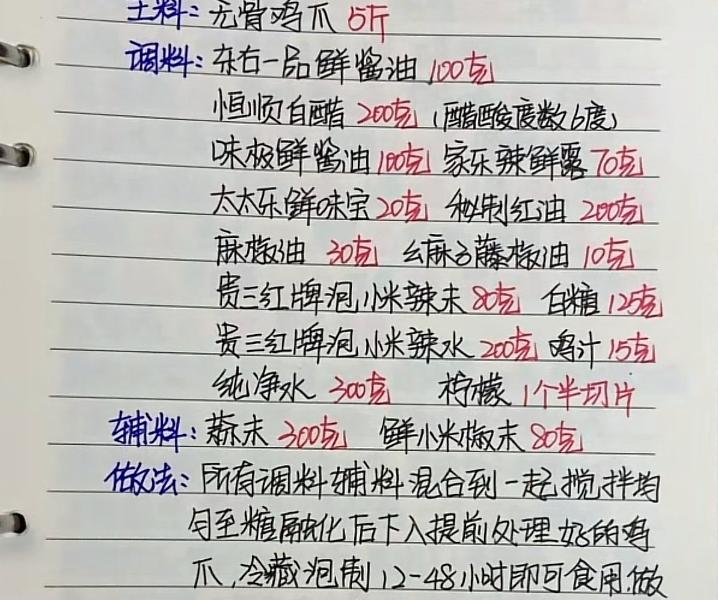 主料：无骨鸡爪 5斤
调料：东古一品鲜酱油 100克
恒顺白醋 200克（醋酸度数6度）
味极鲜酱油 100克 家乐辣鲜露 70克
太太乐鲜味宝 20克 秘制红油 200克
麻椒油 30克 幺麻子藤椒油 10克
贵三红牌泡小米辣末 80克 白糖 125克
贵三红牌泡小米辣水 200克 鸡汁 15克
纯净水 300克 柠檬 1个半切片
辅料：蒜末 300克 鲜小米椒末 80克
做法：所有调料辅料混合到一起搅拌均
匀至糖融化后下入提前处理好的鸡
爪，冷藏泡制12-48小时即可食用。做